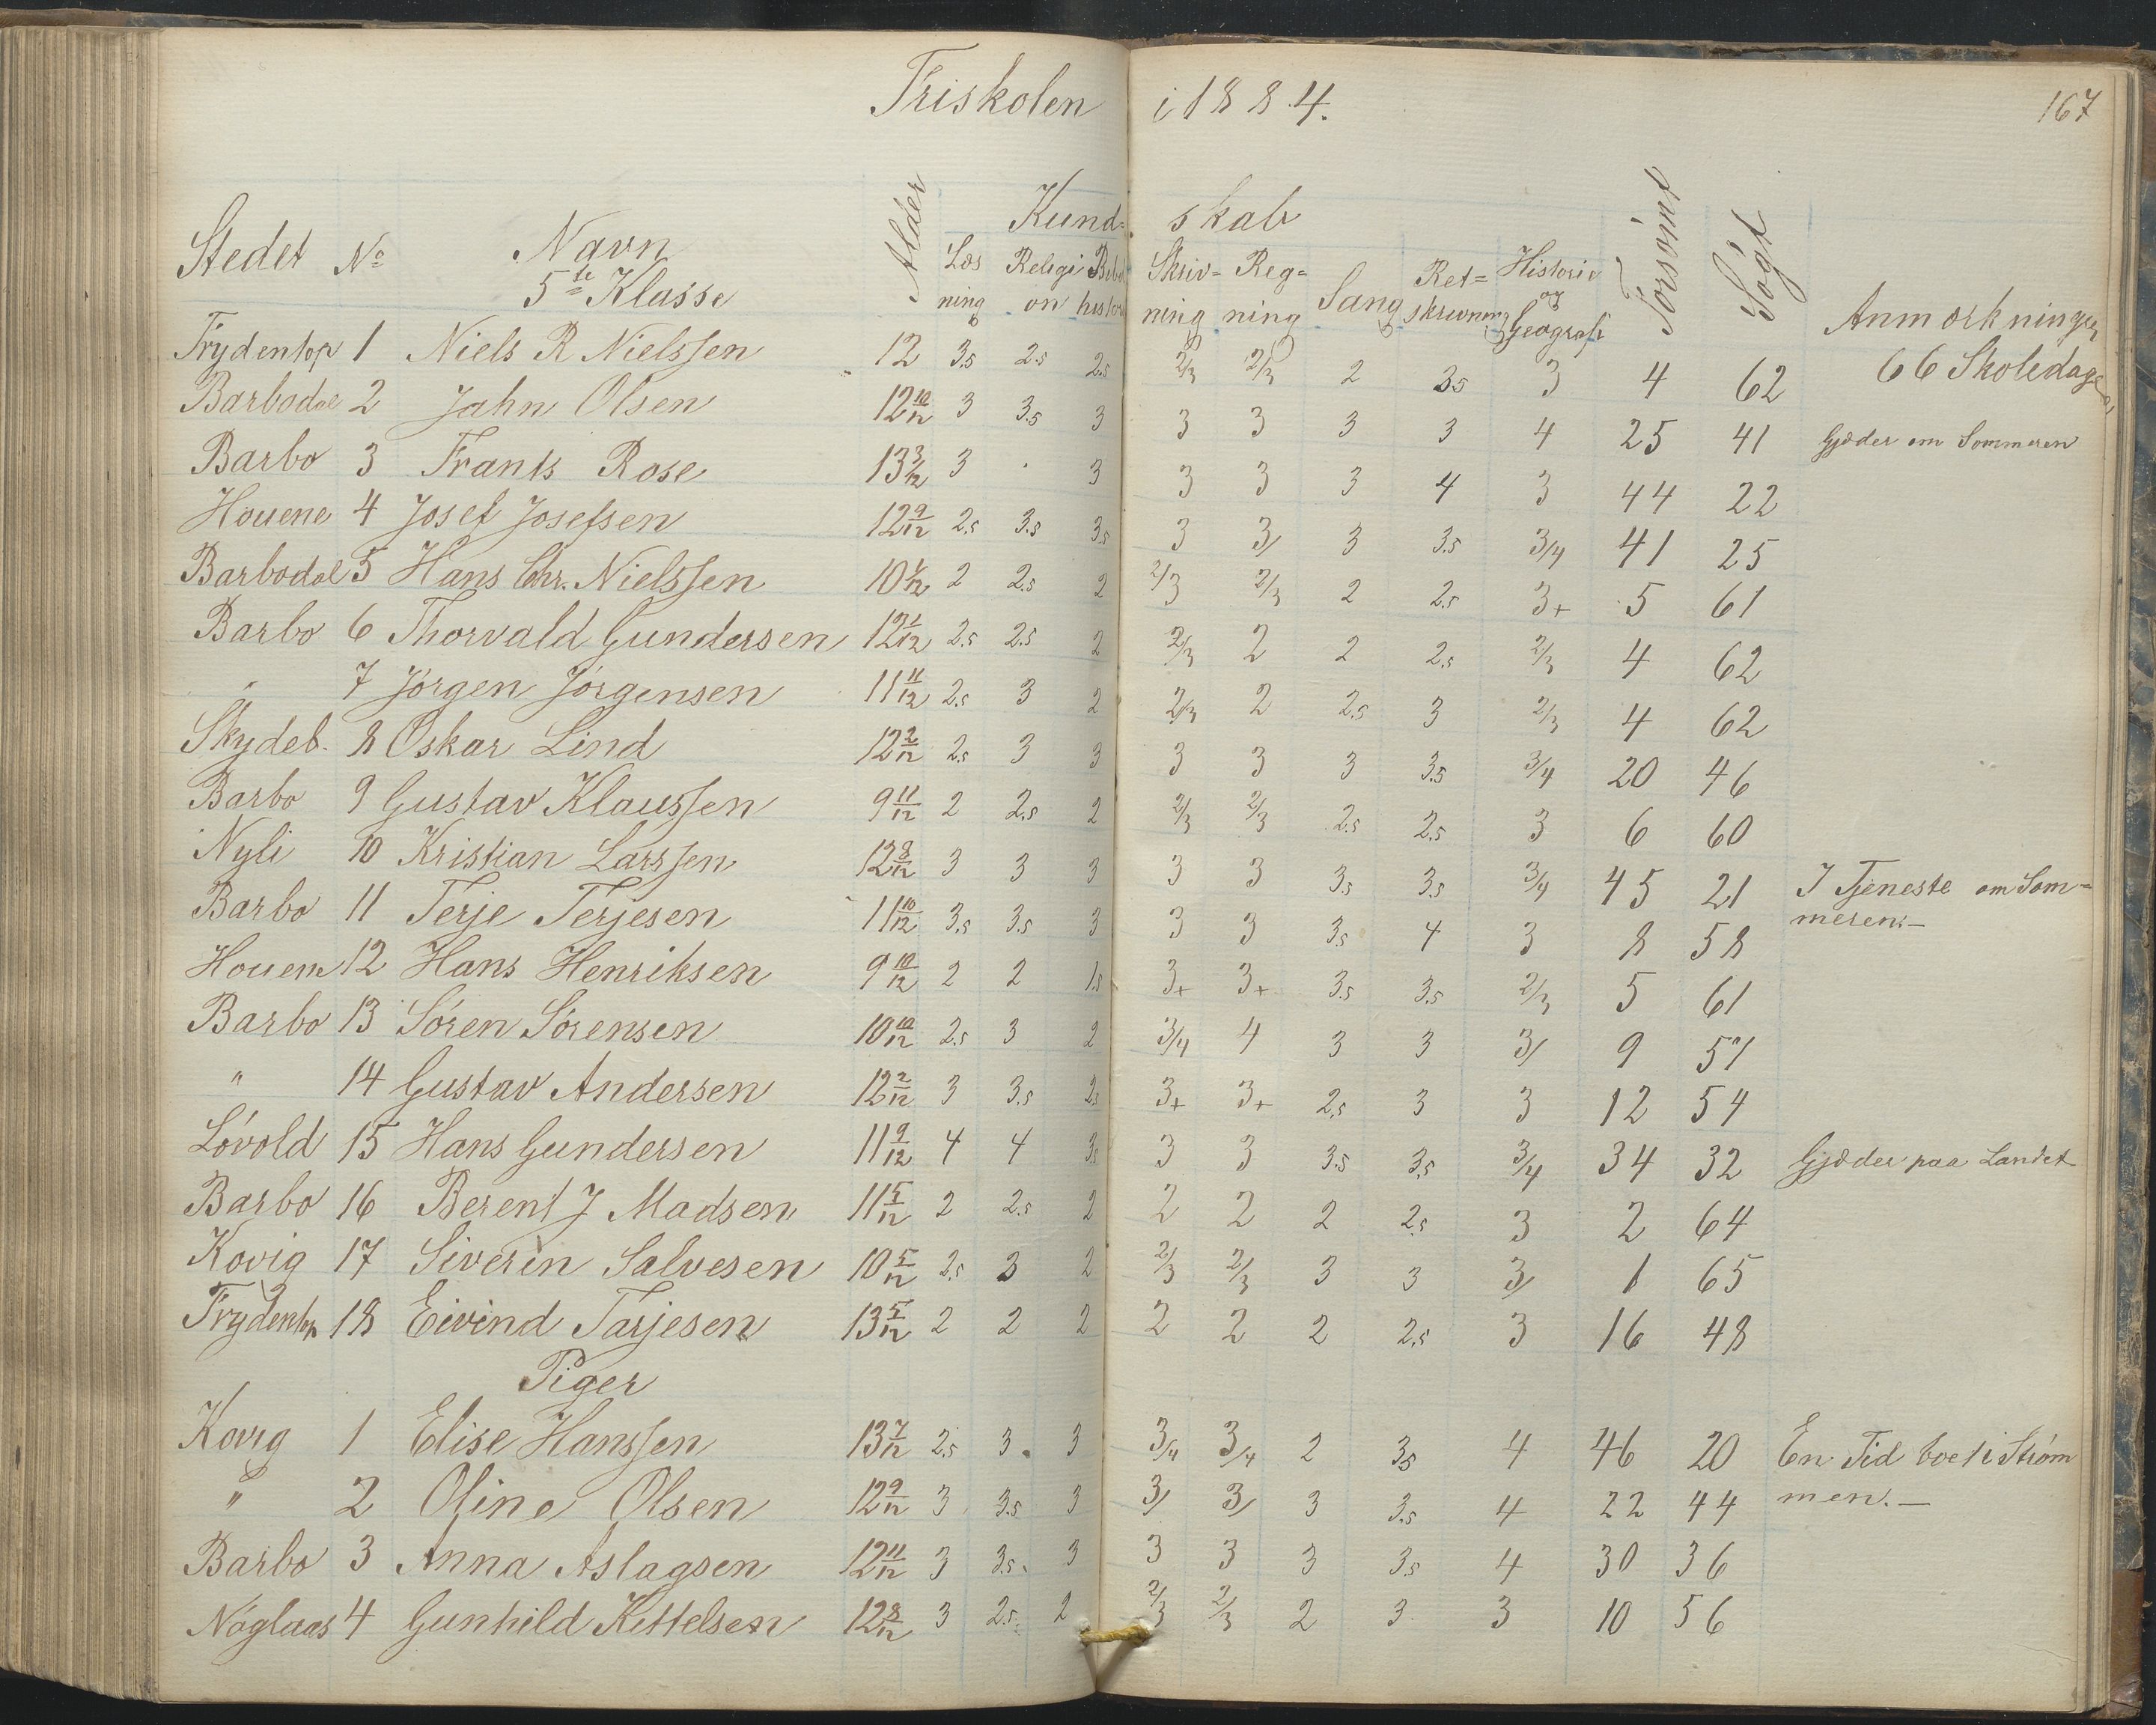 Friskolen i 1884.
167
Kundskab
Stedet No Navn Alder Læsning Religion Bibelhistorie Skrivning Regning Sang Retskrivning Historie og Geografi Forsömt Sögt Anmærkninger
5te Klasse
Frydentop 1 Niels R Nielssen 12 3.5 2.5 2.5 2/3 2/3 2 3.5 3 4 62 66 Skoledage
Barbodal 2 Jahn Olsen 12 10/12 3 3.5 3 3 3 3 3 4 25 41 Gjæder om Sommeren
Barbo 3 Frants Rose 13 3/12 3 . 3 3 3 3 4 3 44 22
Houene 4 Josef Josefsen 12 9/12 2.5 3.5 3.5 3 3/ 3 3.5 3/4 41 25
Barbodal 5 Hans Chr. Nielssen 10 2 2.5 2 2/3 2/3 2 2.5 3+ 5 61
Barbo 6 Thorvald Gundersen 12 1/12 2.5 2.5 2 2/3 2 2 2.5 2/3 4 62
" 7 Jörgen Jörgensen 11 11/12 2.5 3 2 2/3 2 2.5 3 2/3 4 62
Skydeb. 8 Oskar Lind 12 2/12 2.5 3 3 3 3 3 3.5 3/4 20 46
Barbo 9 Gustav Klaussen 9 11/12 2 2.5 2 2/3 2/3 2.5 2.5 3 6 60
Nyli 10 Kristian Larssen 12 8/12 3 3 3 3 3 3.5 3.5 3/4 45 21 I Tjeneste om Som=
Barbo 11 Terje Terjesen 11 10/12 3.5 3.5 3 3 3 3.5 4 3 8 58 meren.—
Houene 12 Hans Henriksen 9 10/12 2 2 1.5 3+ 3+ 3.5 3.5 2/3 5 61
Barbo 13 Sören Sörensen 10 10/12 2.5 3 2 3/4 4 3 3 3/ 9 57
" 14 Gustav Andersen 12 2/12 3 3.5 2.5 3+ 3+ 2.5 3 3 12 54
Lövold 15 Hans Gundersen 11 9/12 4 4 3.5 3 3 3.5 3.5 3/4 34 32 Gjæder paa Landet
Barbo 16 Berent J Madsen 11 5/12 2 2.5 2 2 2 2 2.5 3 2 64
Kovig 17 Siverin Salvesen 10 5/12 2.5 3 2 2/3 2/3 3 3 3/ 1 65
Frydentop 18 Eivind Tarjesen 13 5/12 2 2 2 2 2 2 2.5 3 16 48
Piger
Kovig 1 Elise Hanssen 13 7/12 2.5 3. 3 3/4 3/4 2 3.5 4 46 20 En Tid boet i Ström
" 2 Oline Olsen 12 9/12 3 3.5 3 3/ 3/ 3 3.5 4 22 44 men.—
Barbo 3 Anna Aslagsen 12 11/12 3 3.5. 3 3 3 3 3.5 4 30 36
Nöglaas 4 Gunhild Kittelsen 12 8/12 3 2.5 2 2/3 2/3 2 3 3 10 56